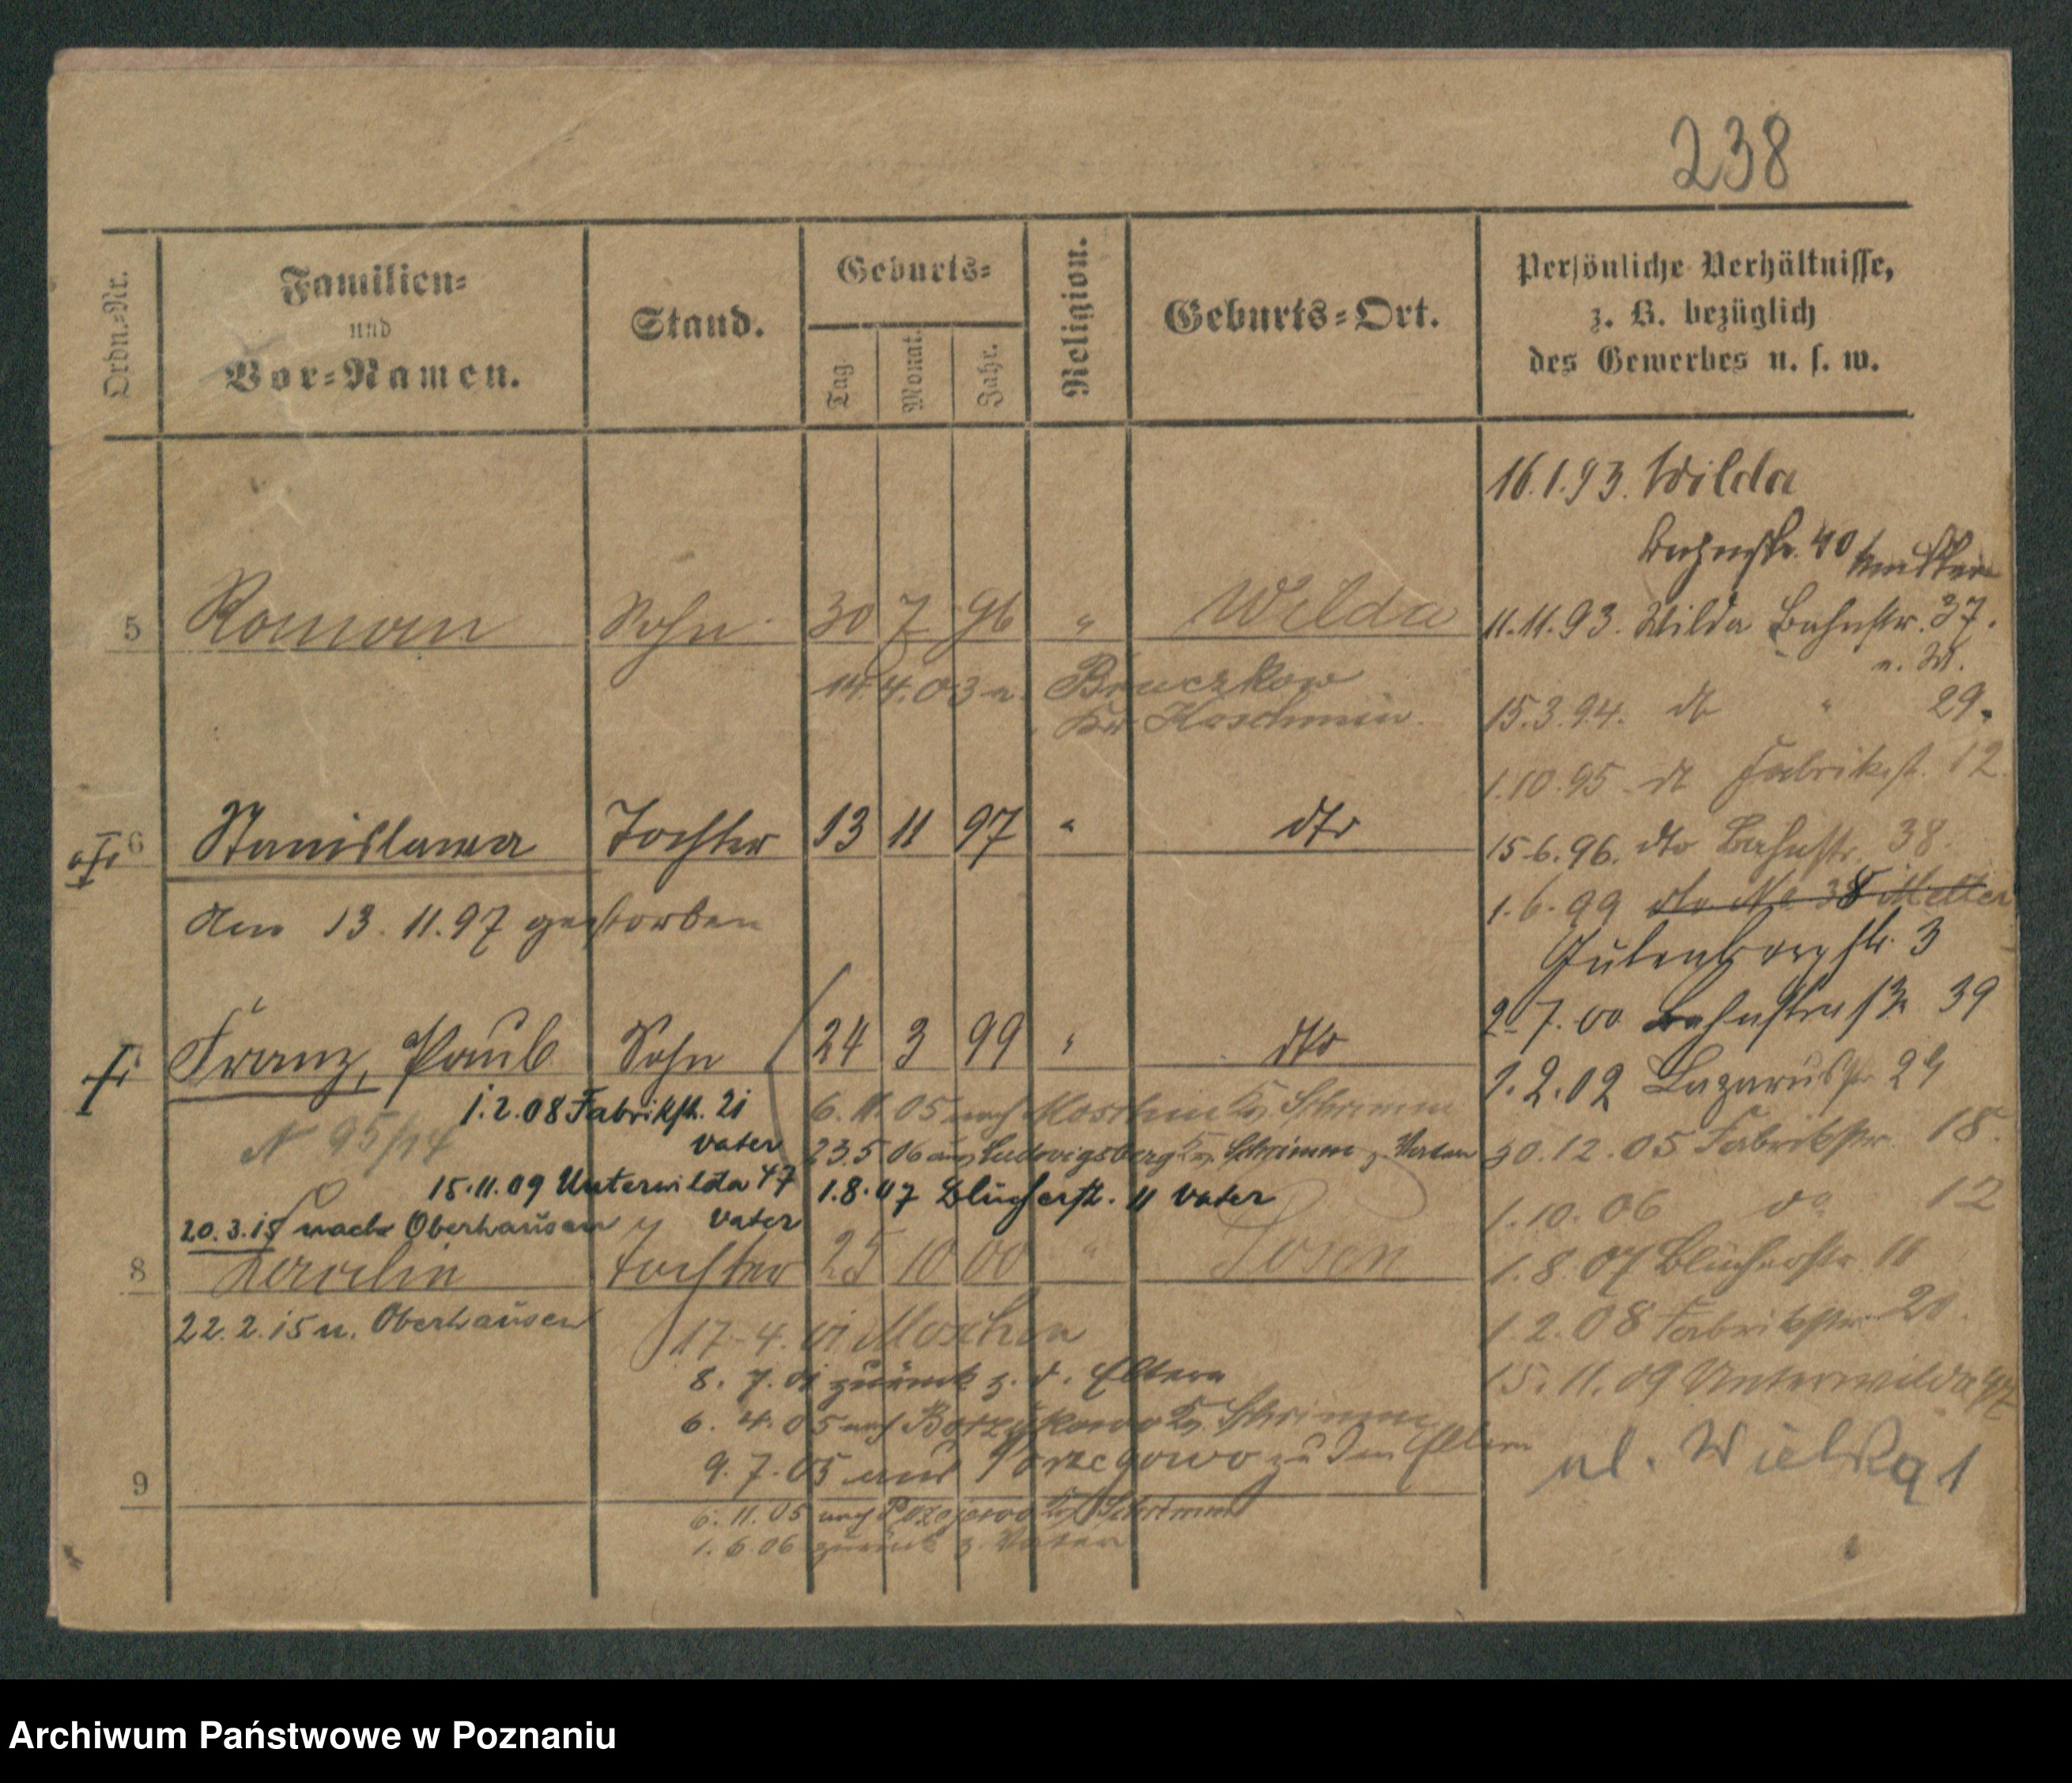 238
Ordn.=Nr.
Familien=
und
Vor=Namen.
Stand.
Geburts=
Tag
Monat.
Jahr.
Religion.
Geburts=Ort.
Persönliche Verhältnisse,
z. B. bezüglich
des Gewerbes u. s. w.
16.1.93. Wilda
Bahnstr. 40
5 Roman Sohn 30 7 96 " Wilda
11.11.93. Wilda Bahnstr. 37.
14.4.03 n. Bruczkow
Kr. Koschmin.
15.3.94. dto " 29.
1.10.95 dto Fabrikst. 12
6 Stanislawa Tochter 13 11 97 " dto
15.6.96. dto Bahnstr. 38.
den 13.11.97 gestorben
1.6.99 dto No 38
Gutenbergstr. 3
Franz, Paul Sohn 24 3 99 " dto
2.7.00 Bahnstraße 39
1.2.02 Lazarusstr 29
1.2.08 Fabrikstr. 21
Vater
6.11.05 nach Moschin Kr. Schrimm
N 95/14
23.5.06 aus Ludwigsberg Kr. Schrimm z. Vater
30.12.05 Fabrikstr. 18.
15.11.09 Unterwilda 47
Vater
1.8.07 Blücherstr. 11 Vater
1.10.06 do 12
20.3.15 nach Oberhausen
8 Tochter 25 10 00 " Posen
1.8.07 Blücherstr 11
22.2.15 n. Oberhausen
17.4.01 Moschin
1.2.08 Fabrikstr. 20.
8.7.01 zurück z. d. Eltern
15.11.09 Unterwilda 47
6.4.05 nach Kr. Schrimm
9.7.05 aus zu den Eltern
ul. Wielka 1
9
6.11.05 nach Kr. Schrimm
1.6.06 zurück z. Vater
Archiwum Państwowe w Poznaniu